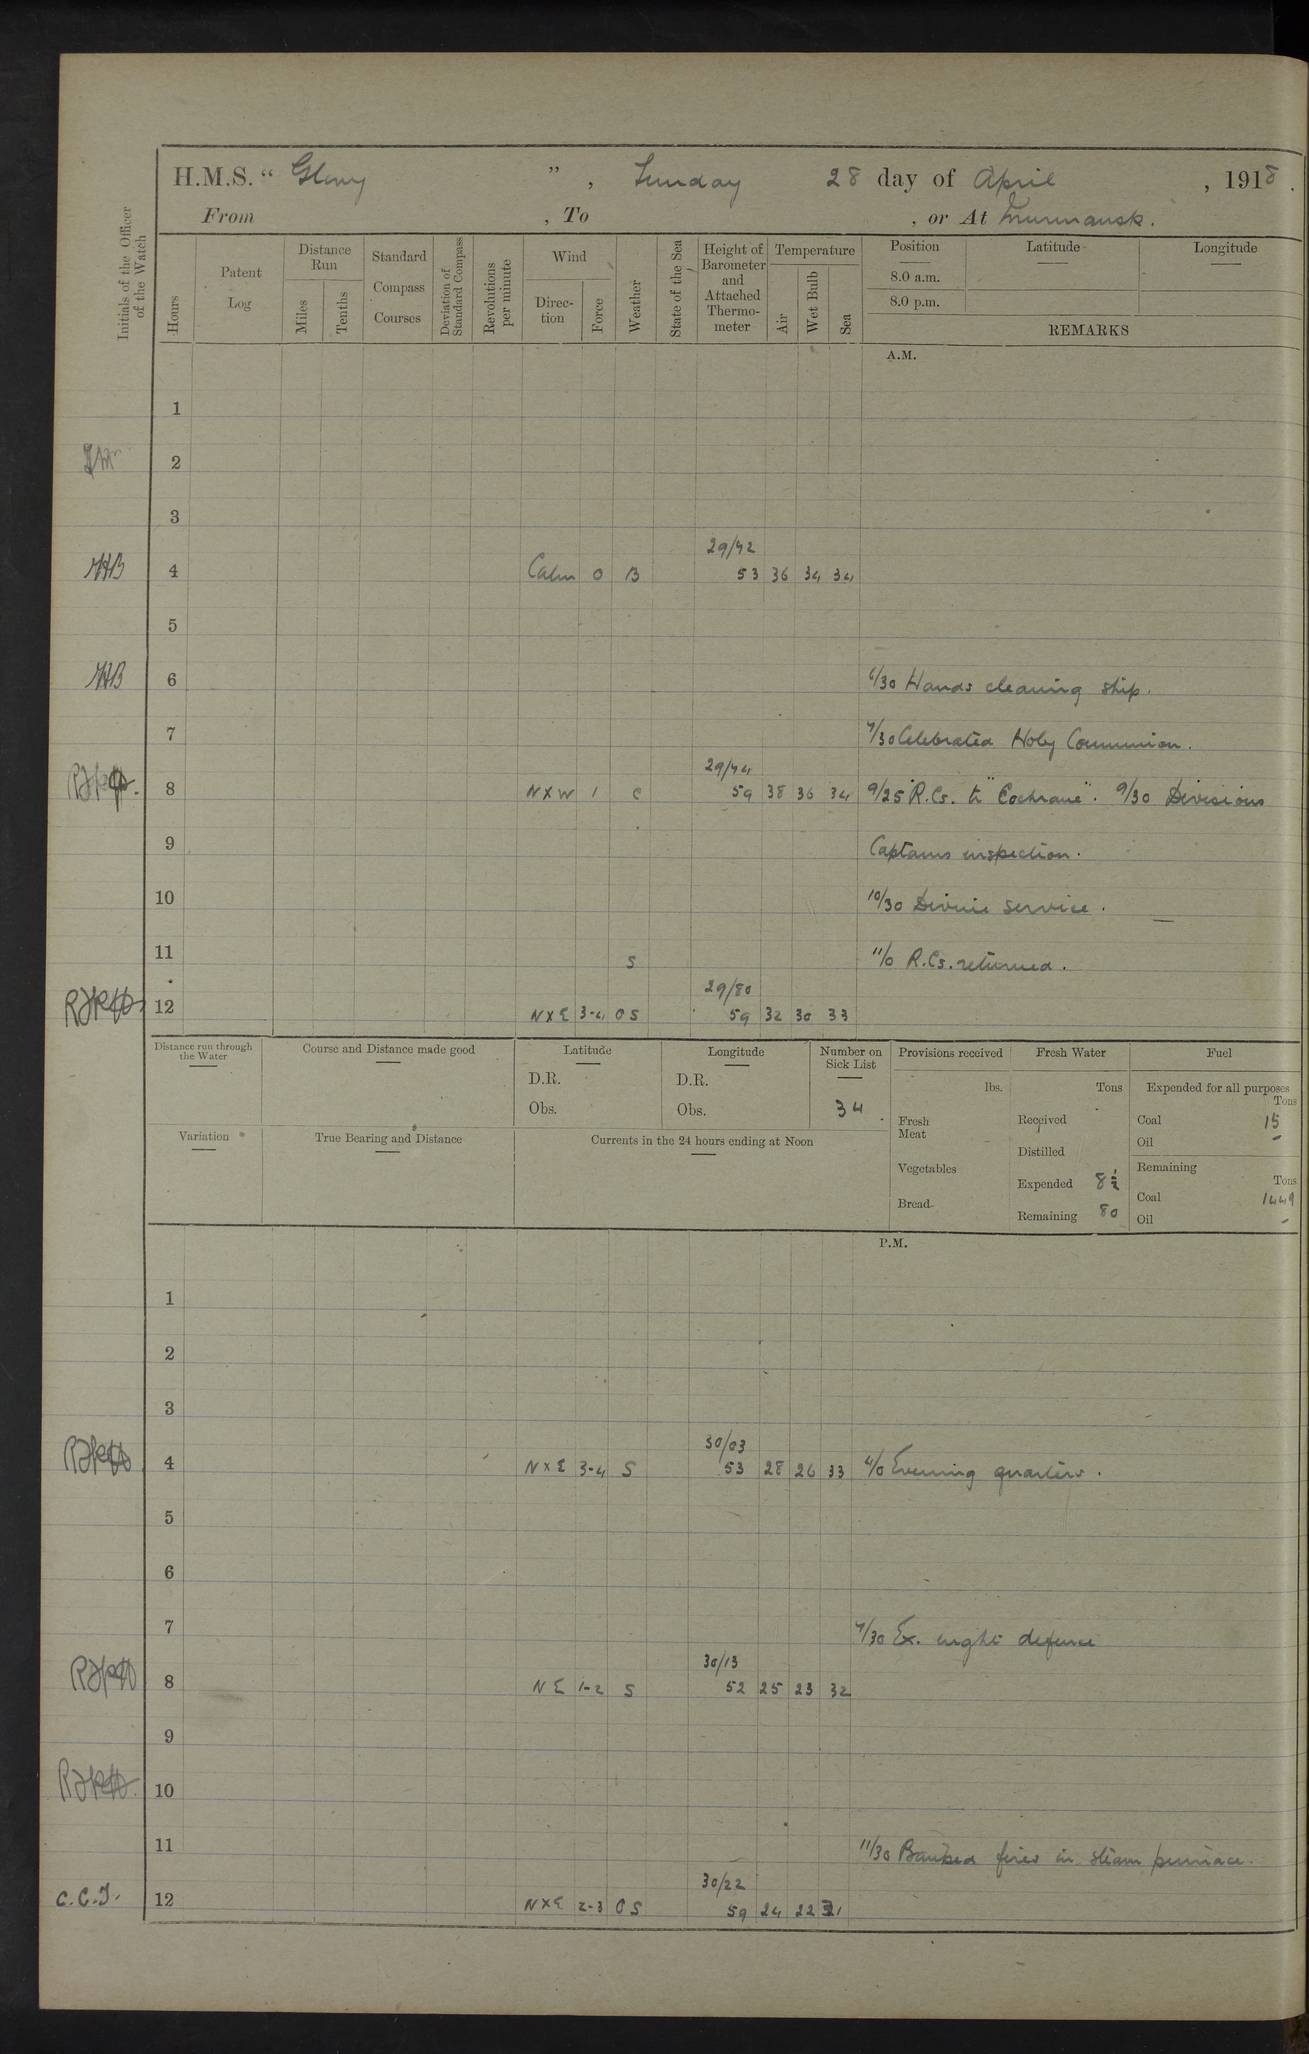 H.M.S. “ Glory ” , Sunday 28 day of April , 1918 .
From , To , or At Murmansk .
Initials of the Officer of the Watch
Hours
Patent Log
Distance Run
Miles
Tenths
Standard Compass Courses
Deviation of Standard Compass
Revolutions per minute
Wind
Direc-tion
Force
Weather
State of the Sea
Height of Barometer and Attached Thermo-meter
Temperature
Air
Wet Bulb
Sea
Position
Latitude
Longitude
8.0 a.m.
8.0 p.m.
REMARKS
A.M.
1
2
3
29/42
HB 4 Calm 0 B 53 36 34 34
5
HB 6 6/30 Hands cleaning ship.
7 7/30 Celebrated Holy Communion.
29/44
8 N X W 1 C 59 38 36 34 9/25 R.Cs. to "Cochrane". 9/30 Divisions
9 Captains inspection.
10 10/30 Divine service.
11 S 11/0 R.Cs. returned.
29/80
12 N X E 3-4 O S 59 32 30 33
Distance run through the Water
Course and Distance made good
Latitude
D.R.
Obs.
Longitude
D.R.
Obs.
Number on Sick List
34
Provisions received
lbs.
Fresh Meat
Vegetables
Bread
Fresh Water
Tons
Received
Distilled
Expended 8½
Remaining 80
Fuel
Expended for all purposes
Tons
Coal 15
Oil -
Remaining
Tons
Coal 1449
Oil -
Variation
True Bearing and Distance
Currents in the 24 hours ending at Noon
P.M.
1
2
3
30/03
4 N X E 3-4 S 53 28 26 33 4/0 Evening quarters.
5
6
7 7/30 Ex. night defence
30/13
8 N E 1-2 S 52 25 23 32
9
10
11 11/30 Banked fires in steam pinnace.
30/22
12 N X E 2-3 O S 59 24 22 31